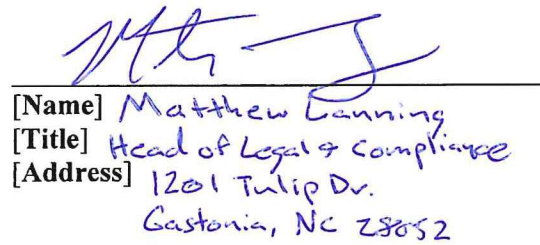 [Name] Matthew Lanning
[Title] Head of Legal & Compliance
[Address] 1201 Tulip Dr.
Gastonia, NC 28052